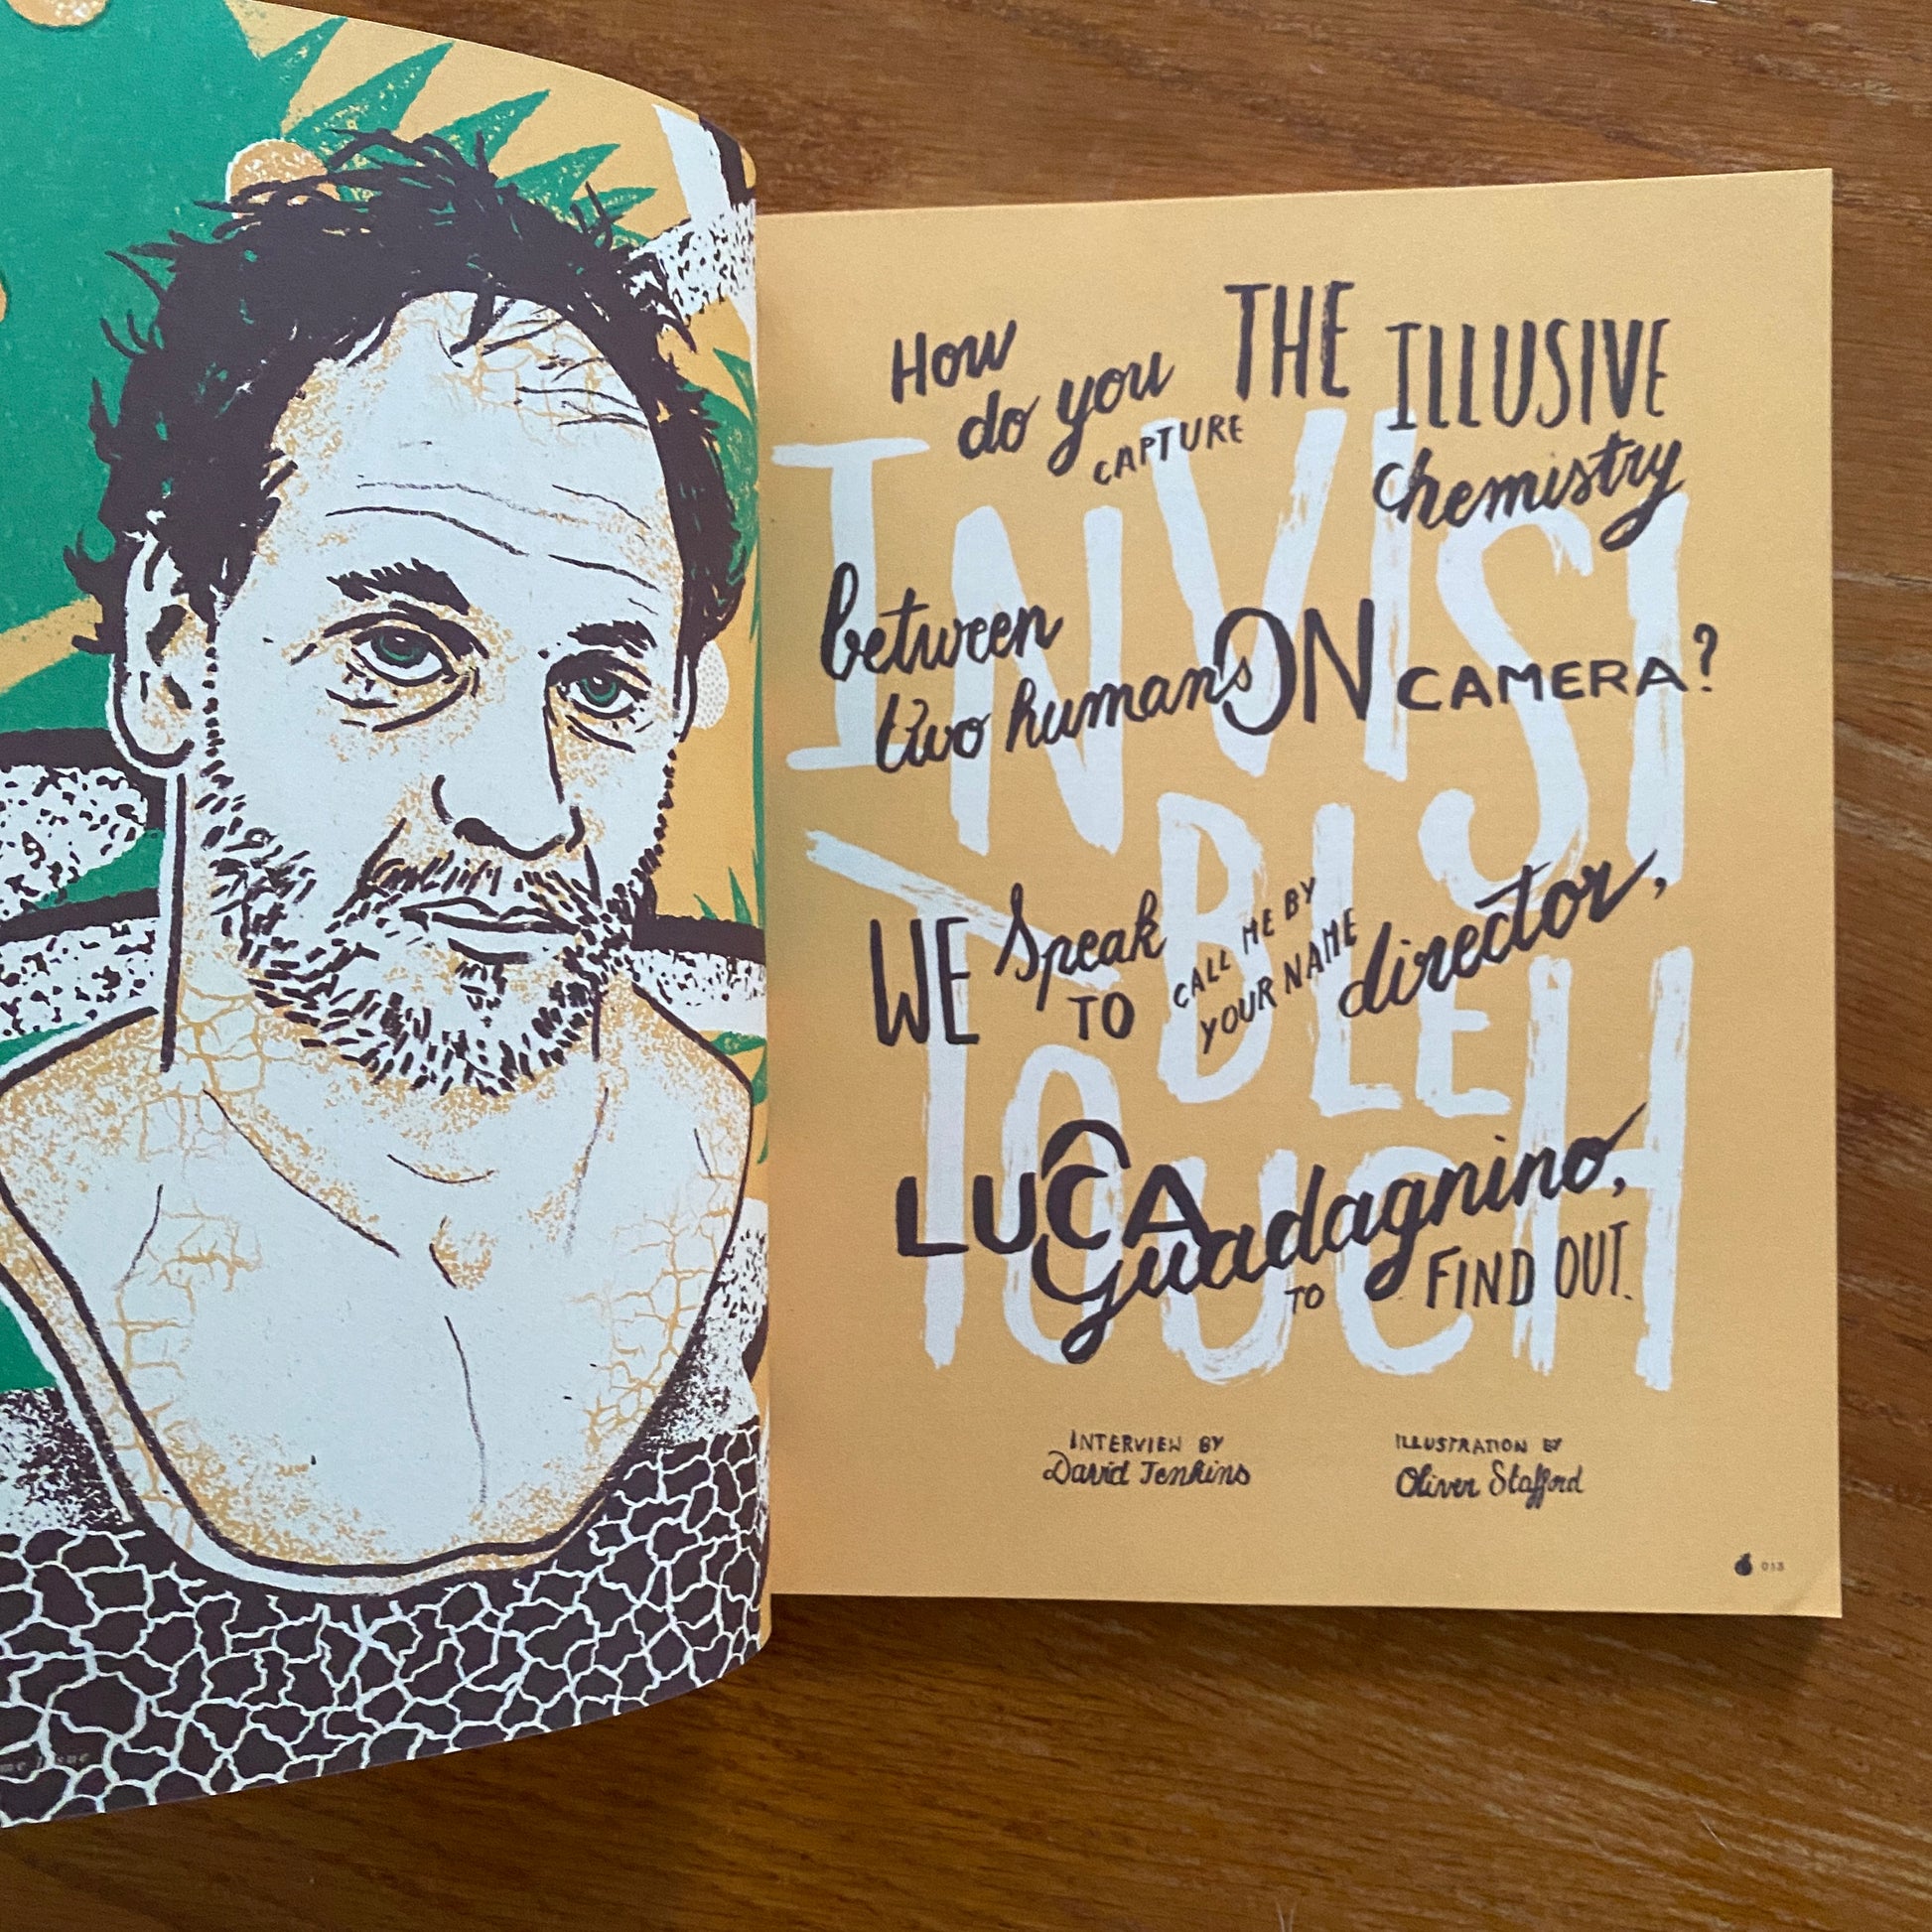 How
do you CAPTURE THE ILLUSIVE
chemistry
between
two humans ON CAMERA?
WE Speak TO CALL ME BY YOUR NAME director,
LUCA Guadagnino,
TO FIND OUT.
INVISI
BLE
TOUCH
INTERVIEW BY
David Jenkins
ILLUSTRATION BY
Oliver Stafford
013